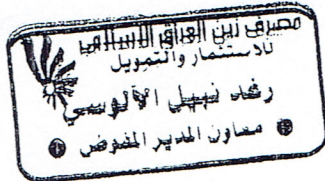 مصرف زين العراق الاسلامي
للاستثمار والتمويل
رغد نبيل الآلوسي
معاون المدير المفوض